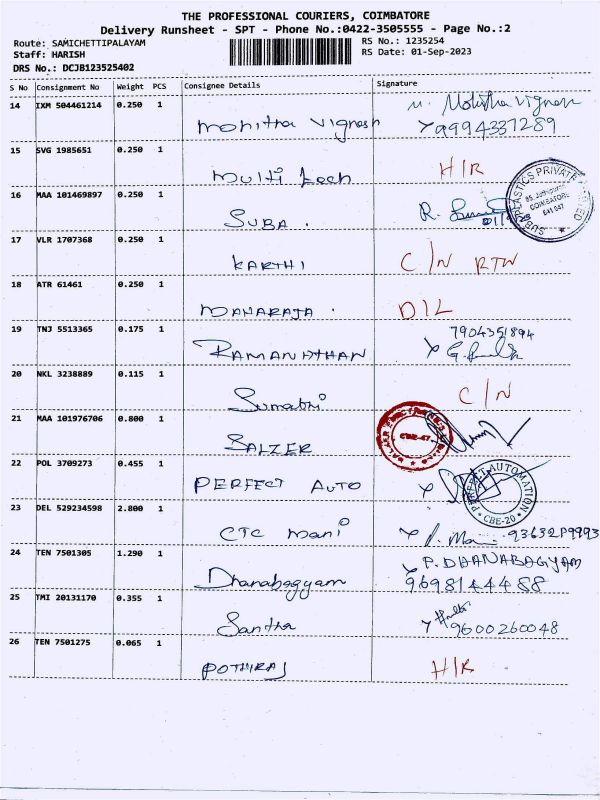 THE PROFESSIONAL COURIERS, COIMBATORE
Delivery Runsheet - SPT - Phone No.:0422-3505555 - Page No.:2
Route: SAMICHETTIPALAYAM
RS No.: 1235254
Staff: HARISH
RS Date: 01-Sep-2023
DRS No.: DCJB123525402
S No Consignment No Weight PCS Consignee Details Signature
14 IXM 504461214 0.250 1 Mohitha Vignesh M. Mohitha Vignesh
9994337289
15 SVG 1985651 0.250 1 Multi tech H/R
16 MAA 101469897 0.250 1 SUBA. R.
SUBA PLASTICS PRIVATE LIMITED
COIMBATORE
641 047
17 VLR 1707368 0.250 1 KARTHI C/N RTN
18 ATR 61461 0.250 1 MAHARAJA. D/L
19 TNJ 5513365 0.175 1 RAMANATHAN 7904351894
20 NKL 3238889 0.115 1 Sumathi C/N
21 MAA 101976706 0.800 1 SALZER
CBE-47
22 POL 3709273 0.455 1 PERFECT AUTO
PERFECT AUTOMATION
CBE-20
23 DEL 529234598 2.800 1 CTC Mani P. Ma
24 TEN 7501305 1.290 1 Dhanabagyam P. DHANABAGYAM
9698144488
25 TMI 20131170 0.355 1 Santha
9600260048
26 TEN 7501275 0.065 1 POTHIRAJ H/R